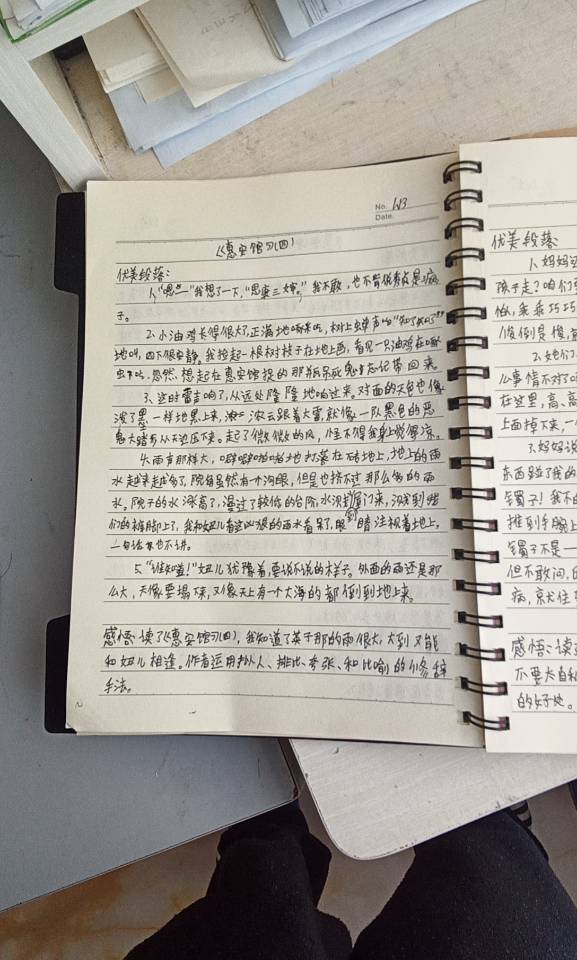 No. W3
Date.
《惠安馆》(四)
优美段落：
1、"嗯——"我想了一下，"思康三婶。"我不敢，也不肯说秀贞是疯
子。
2、小油鸡长得很大了，正满地啄米吃，树上蝉声"知了知了"
地叫，四下很安静。我捡起一根树枝子在地上画，看见一只油鸡在啄
虫吃，忽然想起在惠安馆捉的那瓶吊死鬼忘记带回来。
3、这时雷声响了，从远处隆隆地响过来。对面的天色也像
泼了墨一样地黑上来，浓云跟着大雷，就像一队黑色的恶
鬼大踏步从天边压下来。起了微微的风，怪不得我身上觉得凉。
4、雨有那样大，噼噼啪啪地打落在砖地上，地上的雨
水越来越多了，院角虽然有一个沟眼，但是也挤不过那么多的雨
水。院子的水涨高了，漫过了较低的台阶，水溅到屋门来，溅到我
们的裤脚上了，我和妞儿看这凶狠的雨水看呆了，眼睛注视着地上，
一句话也不讲。
5、"谁知道！"妞儿犹豫着，要说不说的样子。外面的雨还是那
么大，天像要塌下来，又像天上有一个大海的都倒到地上来。
感悟：读了《惠安馆》(四)，我知道了英子那的雨很大，大到又能
和妞儿相逢。作者运用拟人、排比、夸张、和比喻的修辞
手法。
优美段落：
1、妈妈
孩子走？咱们
怕，乖乖巧巧
俊倒是俊，
么事情不对了
在这里，高、高
上面掉下来，一
3、妈妈说
东西碰了我的
镯子！我不
推到手腕上
镯子不是一
但不敢问，
病，京犬住
感悟：读
不要大自
的好处。